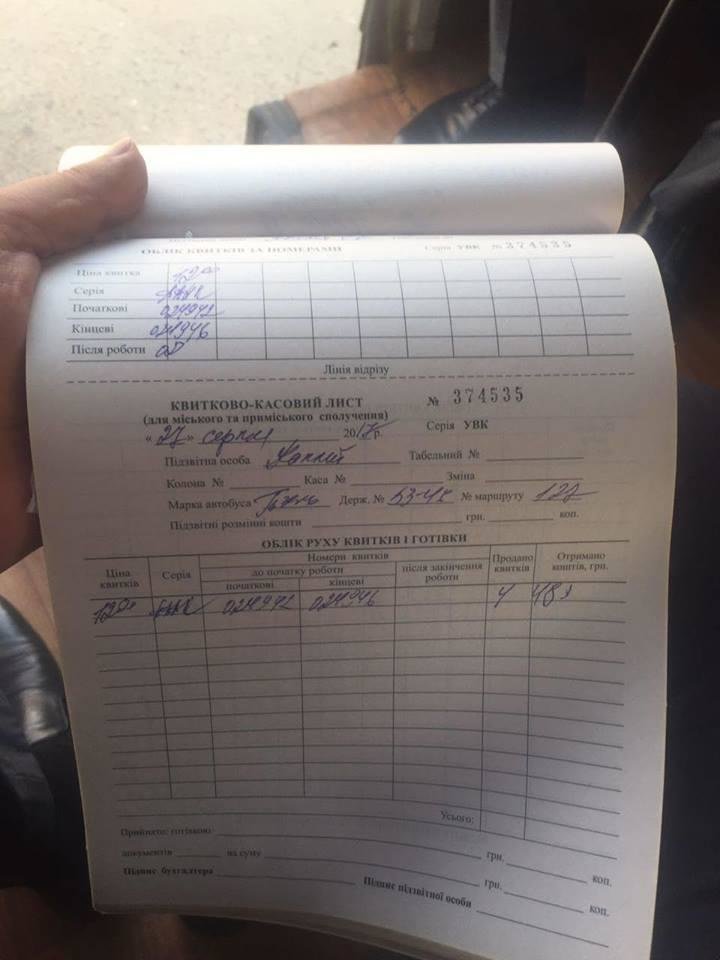 ОБЛІК КВИТКІВ ЗА НОМЕРАМИ Серія УВК № 374535
Ціна квитка 12 00
Серія
Початкові 024942
Кінцеві 024946
Після роботи
Лінія відрізу
КВИТКОВО-КАСОВИЙ ЛИСТ № 374535
(для міського та приміського сполучення)
« 27 » серпня 2017р. Серія УВК
Підзвітна особа Табельний №
Колона № Каса № Зміна
Марка автобуса Держ. № 53-42 № маршруту 127
Підзвітні розмінні кошти грн. коп.
ОБЛІК РУХУ КВИТКІВ І ГОТІВКИ
Ціна квитків Серія Номери квитків Продано квитків Отримано коштів, грн.
до початку роботи після закінчення роботи
початкові кінцеві
12 00 024942 024946 4 48
Усього:
Прийнято: готівкою грн. коп.
документів на суму грн. коп.
Підпис бухгалтера Підпис підзвітної особи